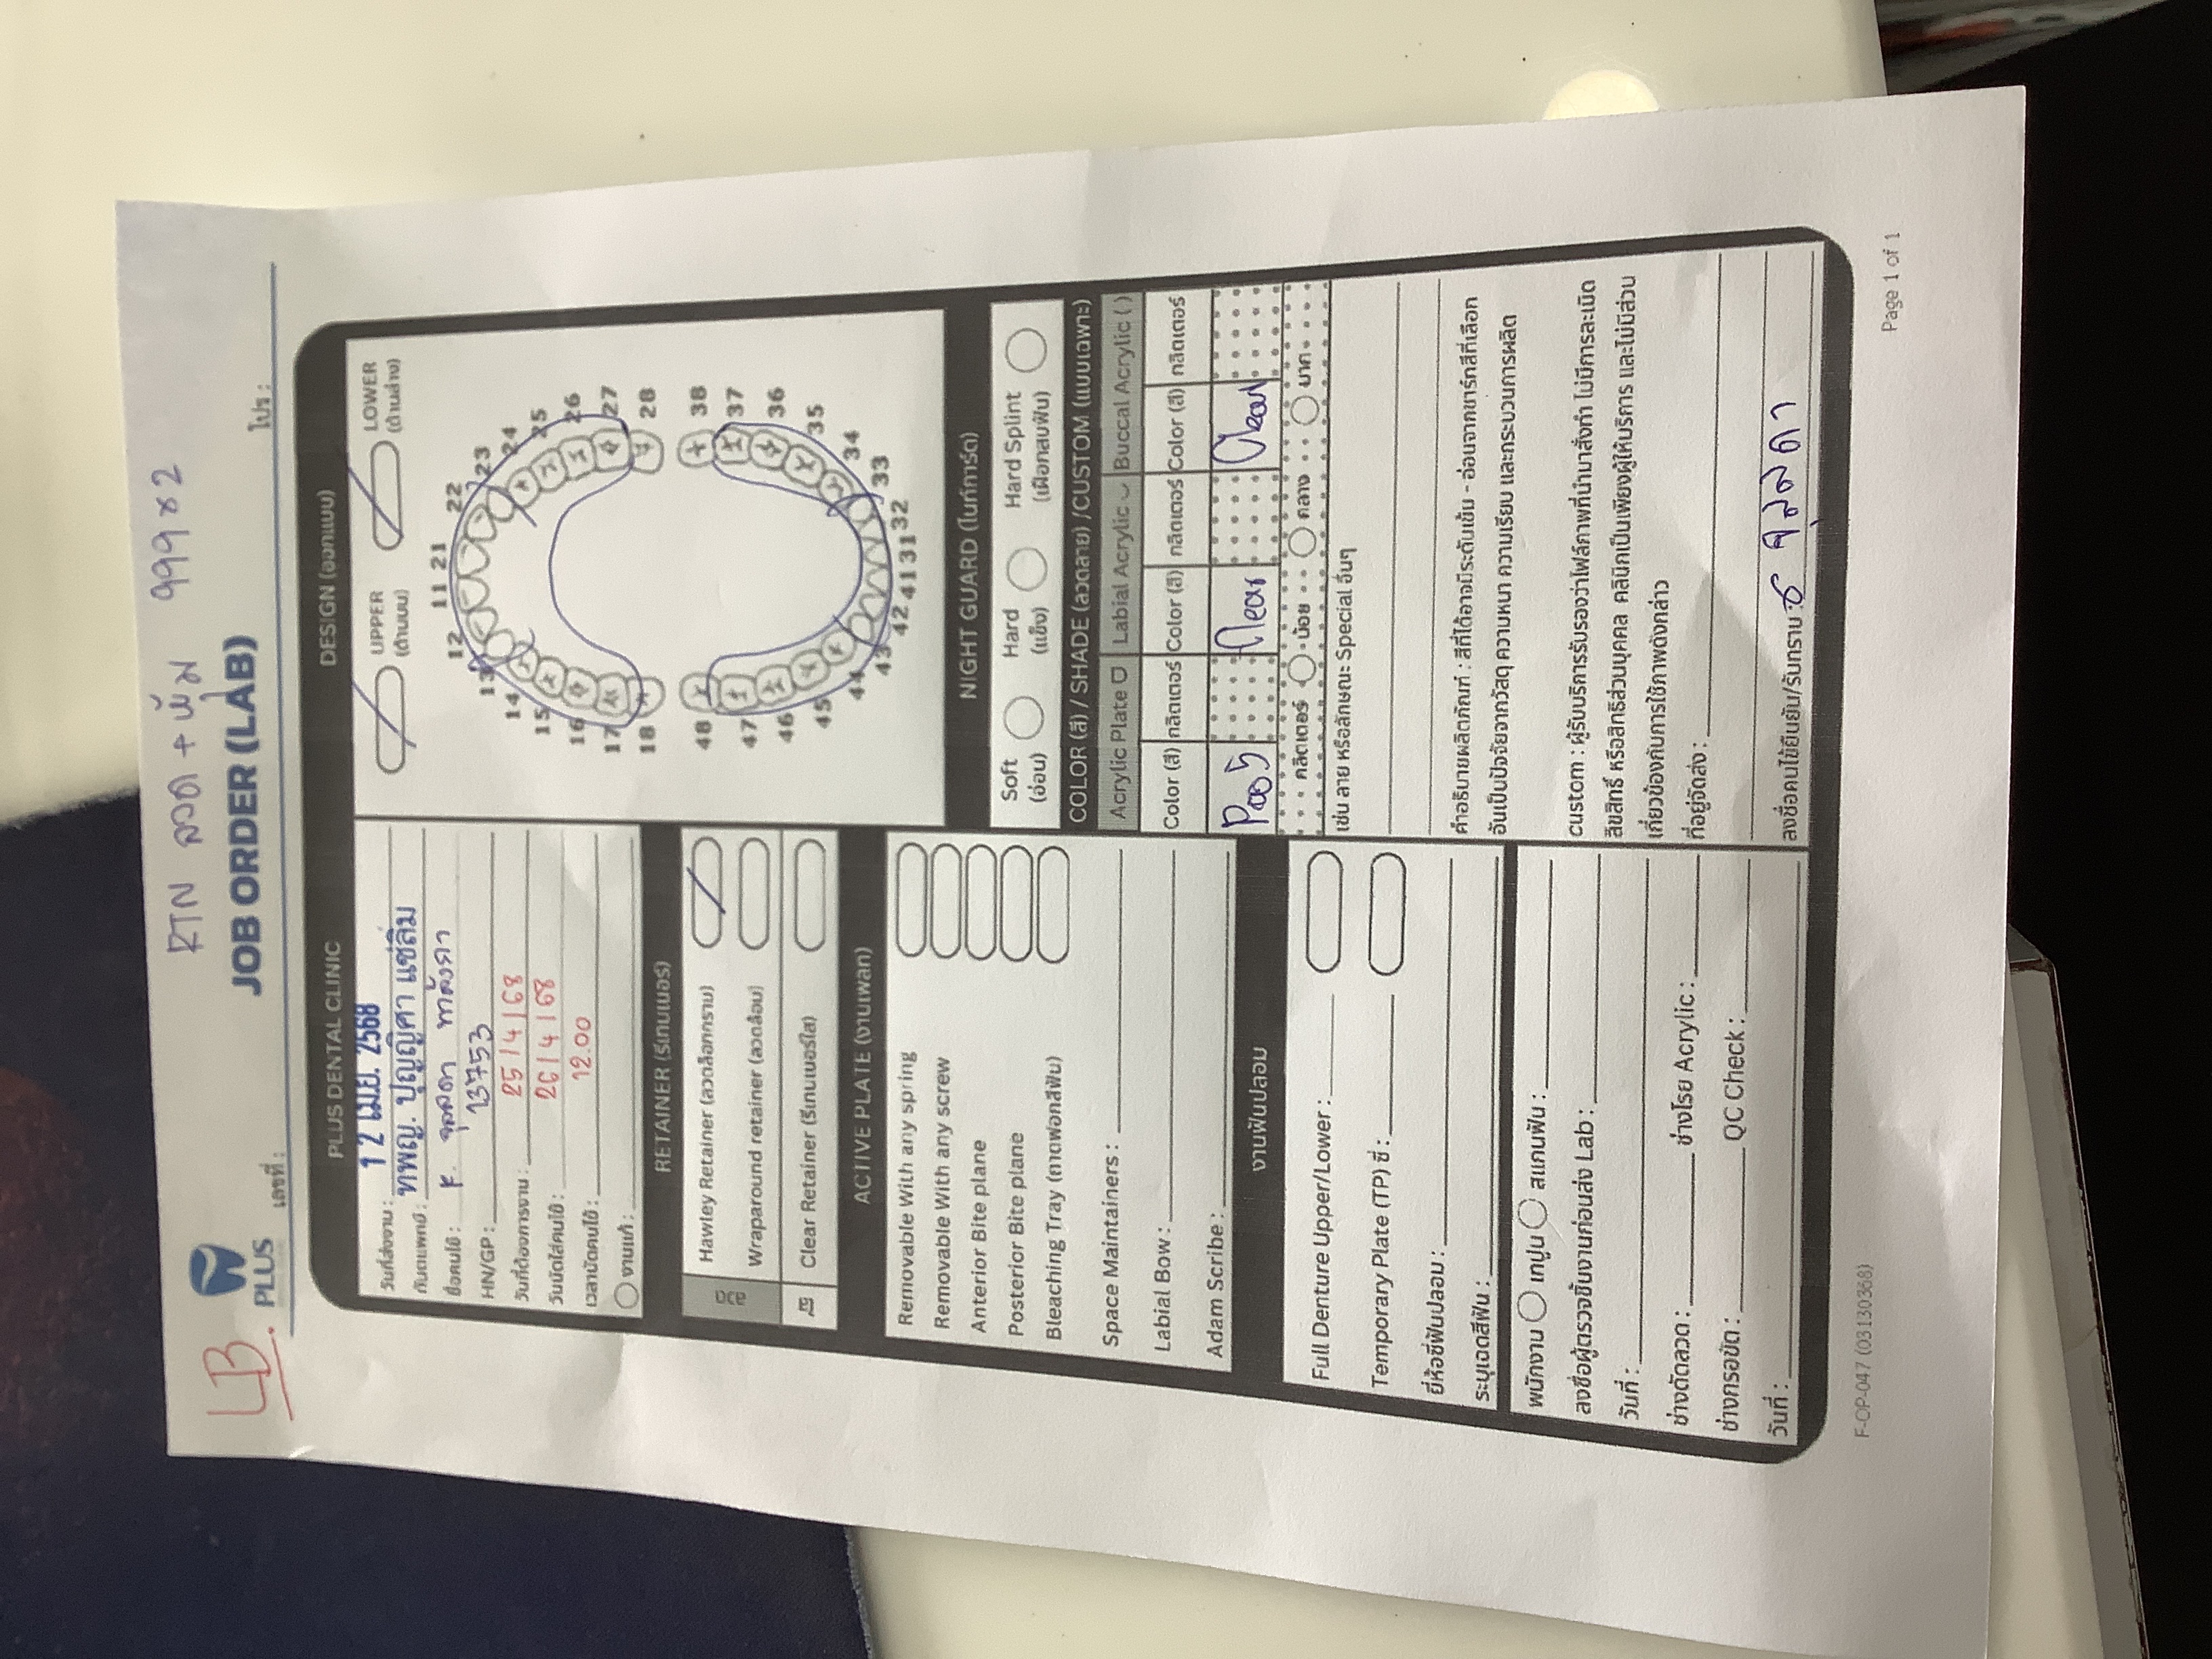 RTN ลวด + หุ้ม 999 x 2
LB.
PLUS
JOB ORDER (LAB)
เลขที่ :
โปร :
PLUS DENTAL CLINIC
วันที่ส่งงาน : 12 เม.ย. 2568
ทันตแพทย์ : ทพญ. ปุญญิศา แซ่ลิ่ม
ชื่อคนไข้ : K. จุลลดา
HN/GP : 13753
วันที่ต้องการงาน : 25/4/68
วันนัดใส่คนไข้ : 26/4/68
เวลานัดคนไข้ : 12.00
งานแก้ :
RETAINER (รีเทนเนอร์)
ลวด
Hawley Retainer (ลวดล็อกกราม)
Wraparound retainer (ลวดล้อม)
ใส
Clear Retainer (รีเทนเนอร์ใส)
ACTIVE PLATE (งานเพลท)
Removable With any spring
Removable With any screw
Anterior Bite plane
Posterior Bite plane
Bleaching Tray (ถาดฟอกสีฟัน)
Space Maintainers :
Labial Bow :
Adam Scribe :
งานฟันปลอม
Full Denture Upper/Lower :
Temporary Plate (TP) ซี่ :
ยี่ห้อซี่ฟันปลอม :
ระบุเฉดสีฟัน :
พนักงาน เทปูน สแกนฟัน :
ลงชื่อผู้ตรวจชิ้นงานก่อนส่ง Lab :
วันที่ :
ช่างดัดลวด : ช่างโรย Acrylic :
ช่างกรอขัด : QC Check :
วันที่ :
DESIGN (ออกแบบ)
UPPER (ด้านบน)
LOWER (ด้านล่าง)
11 21
12 22
13 23
14 24
15 25
16 26
17 27
18 28
48 38
47 37
46 36
45 35
44 34
43 33
42 41 31 32
NIGHT GUARD (ไนท์การ์ด)
Soft (อ่อน)
Hard (แข็ง)
Hard Splint (เฝือกสบฟัน)
COLOR (สี) / SHADE (ลวดลาย) /CUSTOM (แบบเฉพาะ)
Acrylic Plate Labial Acrylic Buccal Acrylic ( )
Color (สี) กลิตเตอร์ Color (สี) กลิตเตอร์ Color (สี) กลิตเตอร์
Clear Clear
กลิตเตอร์ น้อย กลาง มาก
เช่น ลาย หรือลักษณะ Special อื่นๆ
คำอธิบายผลิตภัณฑ์ : สีที่ได้อาจมีระดับเข้ม - อ่อนจากชาร์ทสีที่เลือก
อันเป็นปัจจัยจากวัสดุ ความหนา ความเรียบ และกระบวนการผลิต
custom : ผู้รับบริการรับรองว่าไฟล์ภาพที่นำมาสั่งทำ ไม่มีการละเมิด
ลิขสิทธิ์ หรือสิทธิส่วนบุคคล คลินิกเป็นเพียงผู้ให้บริการ และไม่มีส่วน
เกี่ยวข้องกับการใช้ภาพดังกล่าว
ที่อยู่จัดส่ง :
ลงชื่อคนไข้ยืนยัน/รับทราบ : จุลลดา
F-OP-047 (03130368)
Page 1 of 1